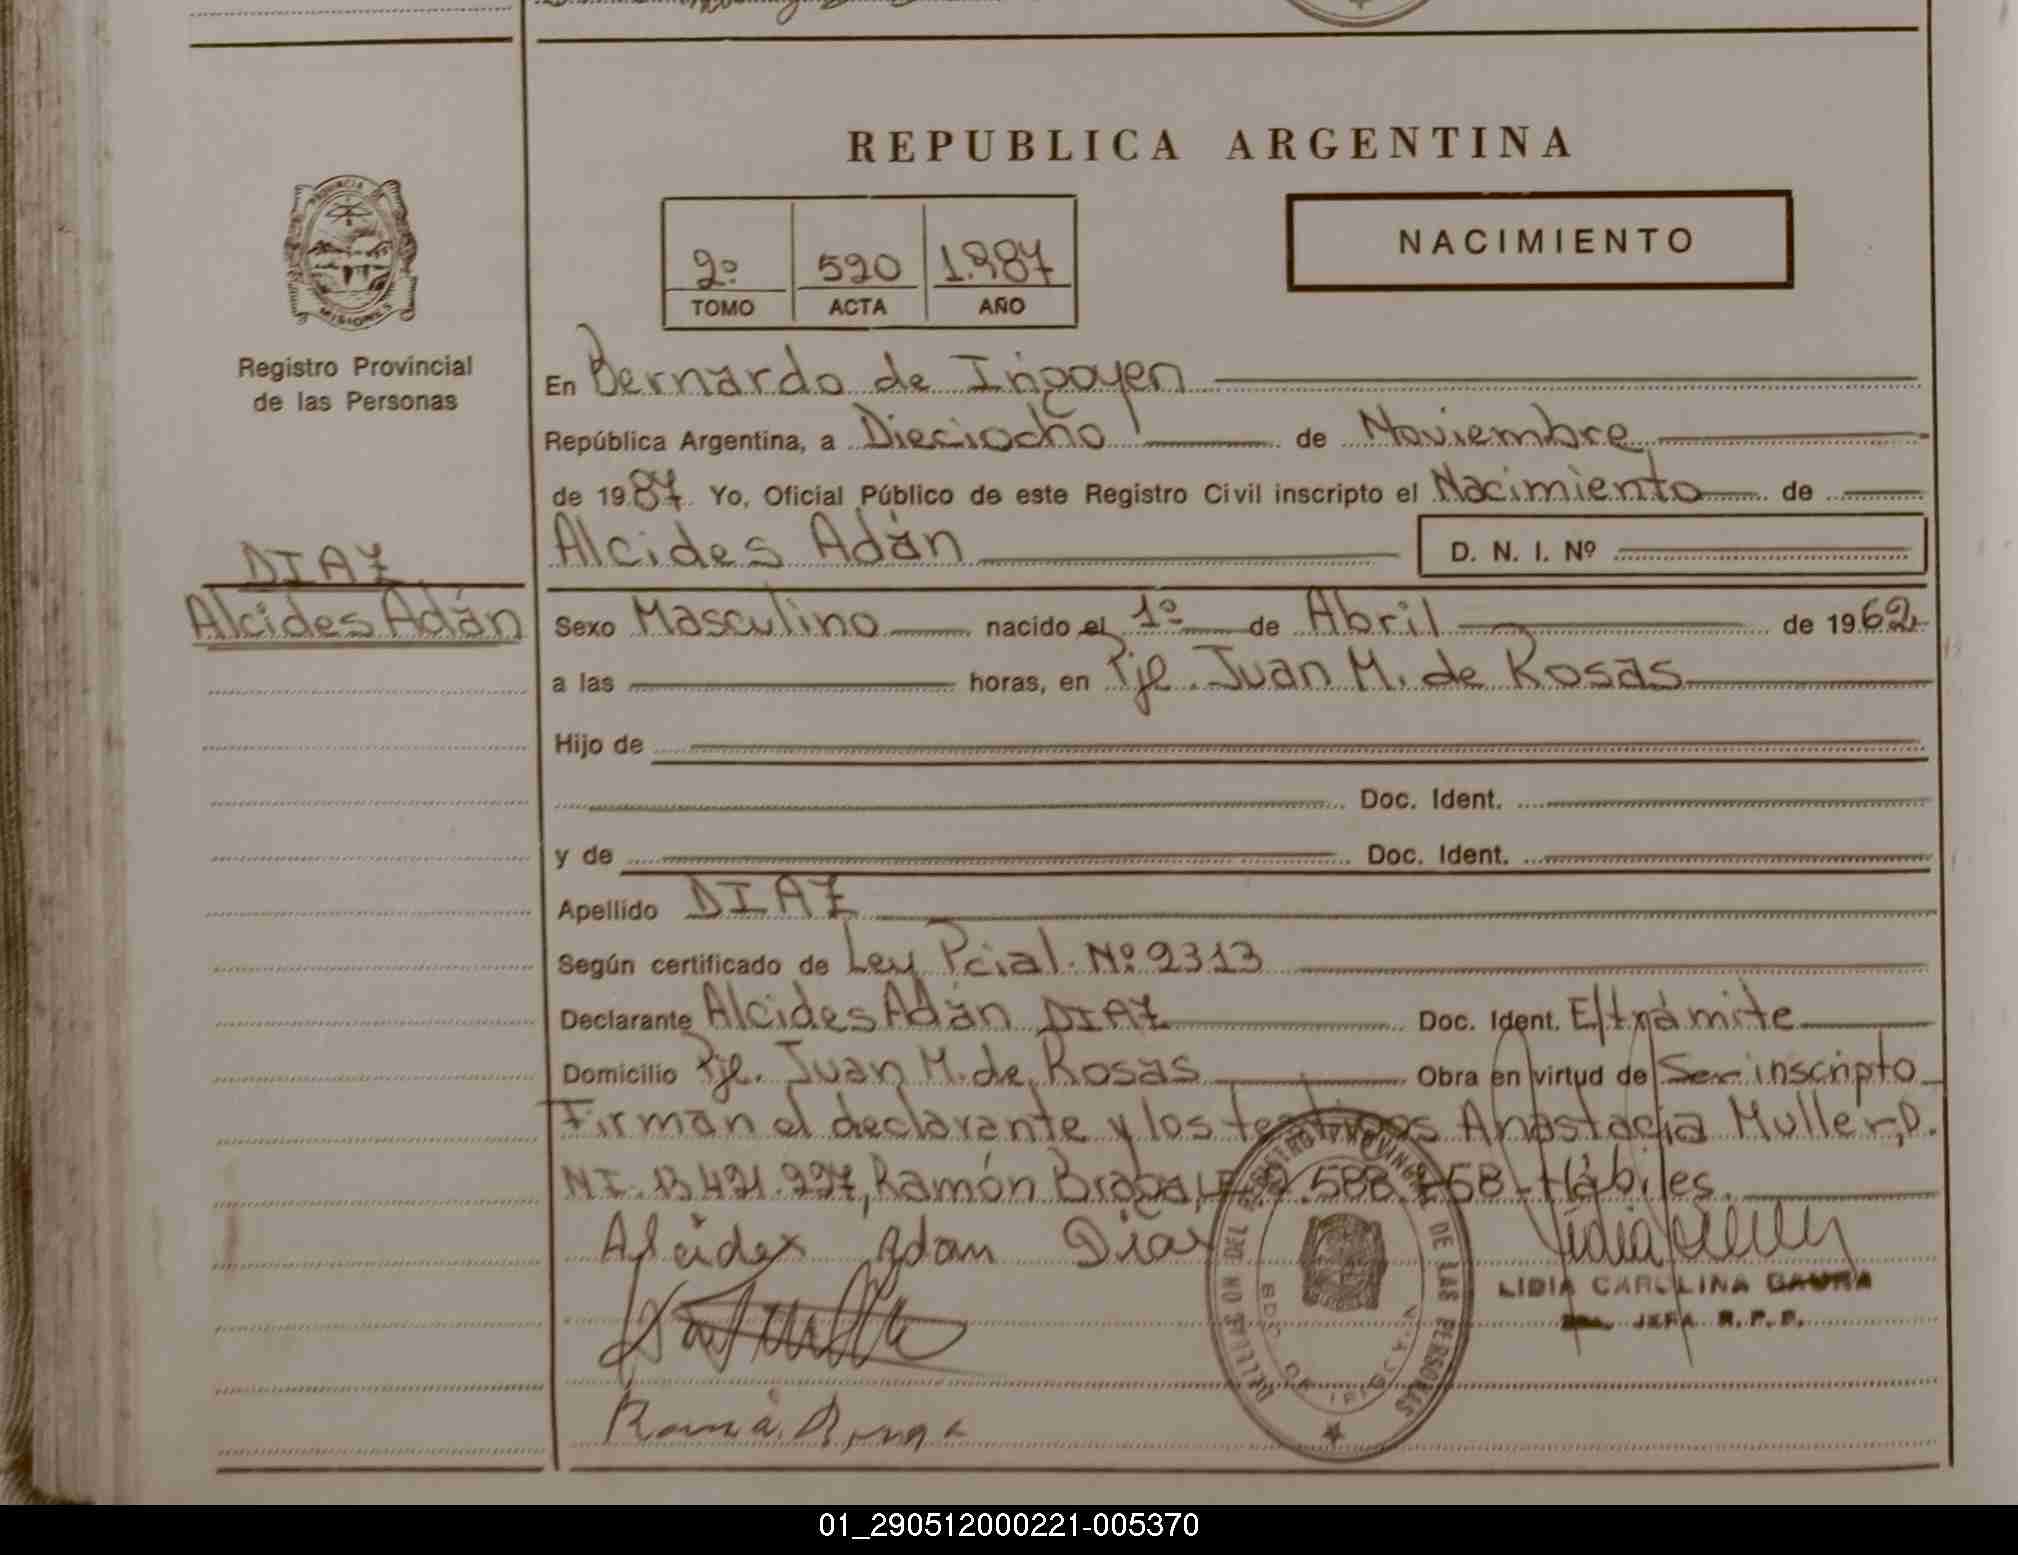 REPUBLICA ARGENTINA
PROVINCIA DE
MISIONES
Registro Provincial
de las Personas
NACIMIENTO
2º 520 1.987
TOMO ACTA AÑO
En Bernardo de Irigoyen
República Argentina, a Dieciocho de Noviembre
de 1987 Yo, Oficial Público de este Registro Civil inscripto el Nacimiento de
Alcides Adán D. N. I. Nº
DIAZ
Alcides Adán
Sexo Masculino nacido el 1º de Abril de 1962
a las horas, en Pje. Juan M. de Rosas
Hijo de
Doc. Ident.
y de Doc. Ident.
Apellido DIAZ
Según certificado de Ley Pcial. Nº 2313
Declarante Alcides Adán DIAZ Doc. Ident. E/trámite
Domicilio Pje. Juan M. de Rosas Obra en virtud de Ser inscripto
Firman el declarante y los testigos Anastacia Muller, D.
NI. 13.421.227, Ramón Braga, 588. 58 - Hábiles.
Alcides Adan Diaz
LIDIA CAROLINA
JEFA R.P.P.
REGISTRO PROVINCIAL DE LAS PERSONAS
BDO. DE IRIGOYEN
01_290512000221-005370